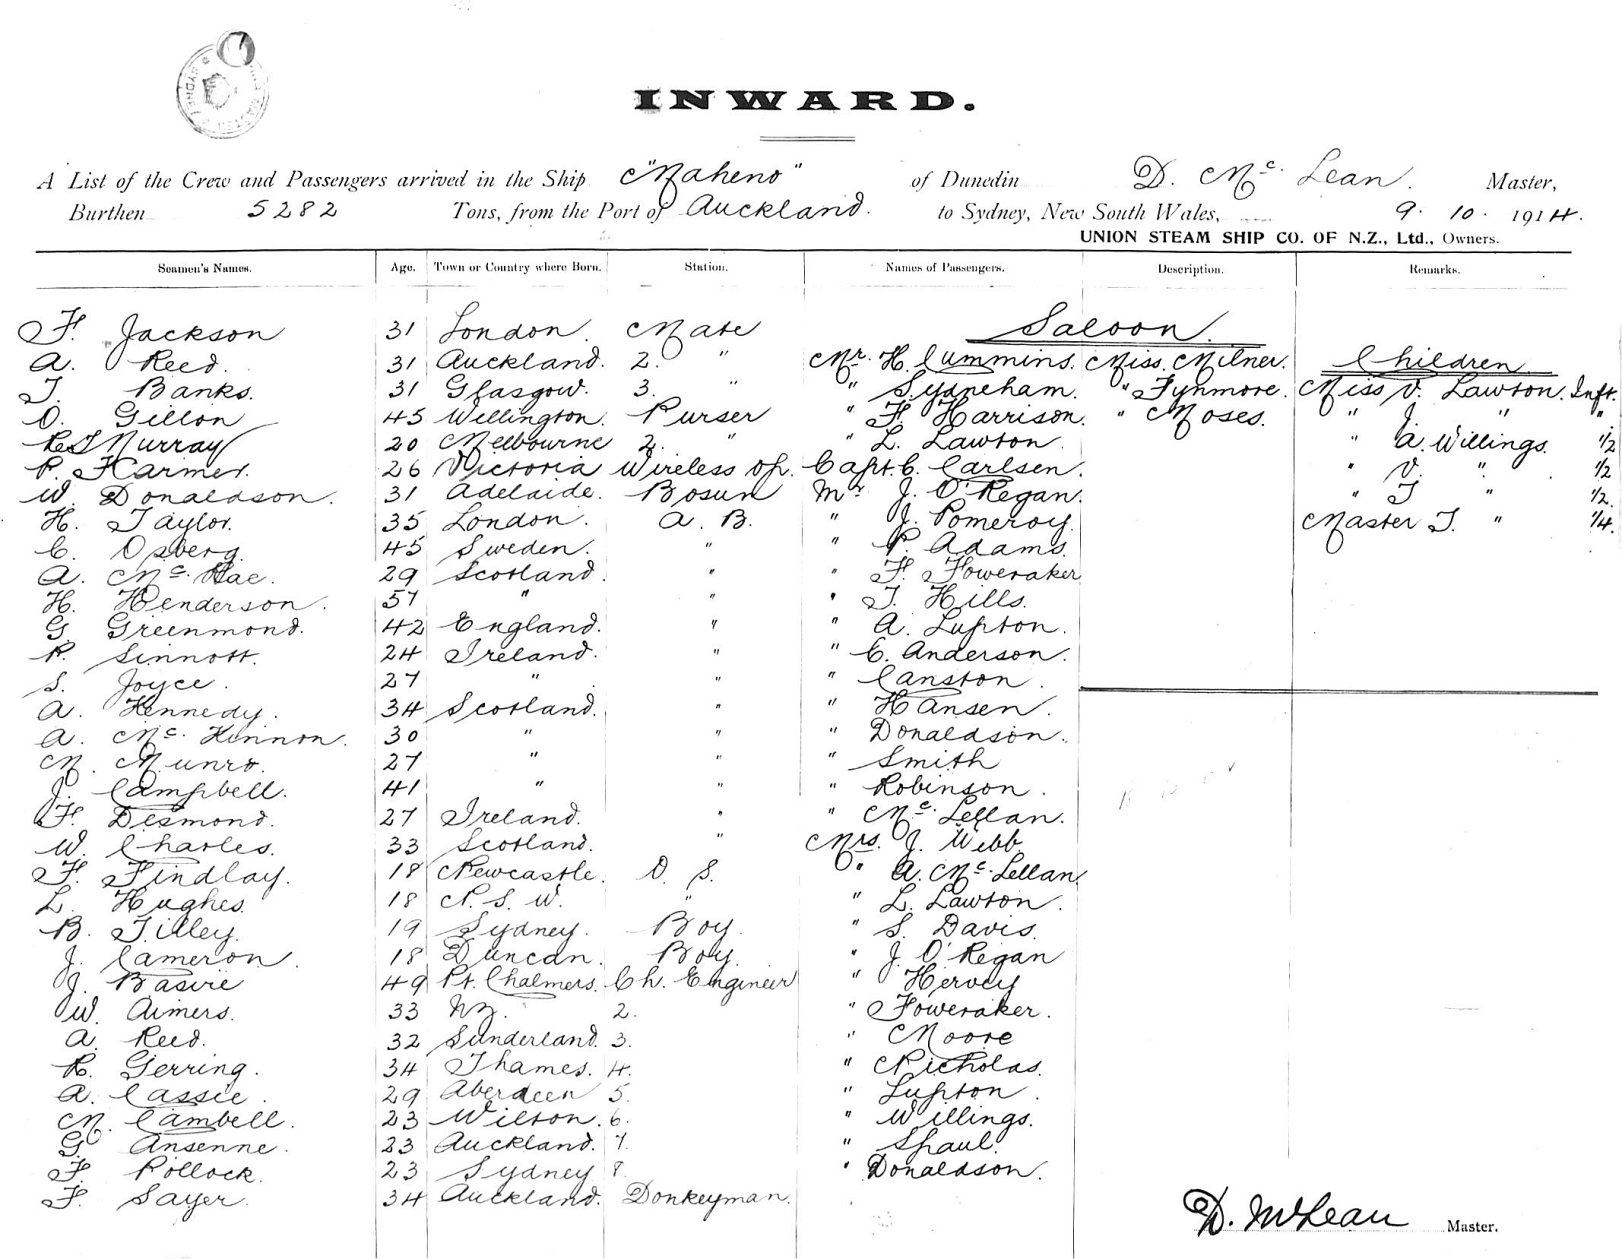 INWARD.
A List of the Crew and Passengers arrived in the Ship "Maheno" of Dunedin D. McLean. Master,
Burthen 5282 Tons, from the Port of Auckland. to Sydney, New South Wales, 9. 10. 1914.
UNION STEAM SHIP CO. OF N.Z., Ltd., Owners.
Seamen's Names. Age. Town or Country where Born. Station. Names of Passengers. Description. Remarks.
F. Jackson 31 London. Mate Saloon.
A. Reed. 31 Auckland. 2. " Mr. H. Cummins. Miss. Milner. Children
T. Banks. 31 Glasgow. 3. " " Sydneham. " Fynmore. Miss V. Lawton. Inft.
O. Gillon 45 Wellington. Purser " F. Harrison. " Moses. " J. " "
R S Murray 20 Melbourne 2. " " L. Lawton. " A. Willings. 1/2
P. Harmer. 26 Victoria Wireless op. Capt. C. Carlsen. " V. " 1/2
W. Donaldson. 31 Adelaide. Bosun Mr. J. O'Regan. " T " 1/2.
H. Taylor. 35 London. A. B. " J. Pomeroy. Master T. " 1/4.
C. Osberg. 45 Sweden. " " P. Adams.
A. McRae. 29 Scotland. " " F. Foweraker
H. Henderson. 57 " " " T. Hills.
G Greenmond. 42 England. " " A. Lupton.
P. Sinnott. 24 Ireland. " " C. Anderson.
S. Joyce. 27 " " " Canston.
A. Kennedy. 34 Scotland. " " Hansen.
A. McKinnon. 30 " " " Donaldson.
M. Munro. 27 " " " Smith
J. Campbell. 41 " " " Robinson.
F. Desmond. 27 Ireland. " " McLellan.
W. Charles. 33 Scotland. " Mrs. J. Webb.
F. Findlay. 18 Newcastle. O. S. " A. McLellan
L. Hughes. 18 N. S. W. " " L. Lawton.
B. Tilley. 19 Sydney. Boy. " S. Davis.
J. Cameron. 18 Duncan. Boy. " J. O'Regan
J. Basire 49 Pt. Chalmers. Ch. Engineer " Hervey
W. Aimers. 33 NZ. 2. " Foweraker.
A. Reed. 32 Sunderland. 3. " Moore
R. Gerring. 34 Thames. 4. " Nicholas.
A. Cassie. 29 Aberdeen 5. " Lupton.
M. Cambell. 23 Wilton. 6. " Willings.
G. Ansenne. 23 Auckland. 7. " Spaul.
F. Pollock. 23 Sydney 8. " Donaldson.
F. Sayer. 34 Auckland. Donkeyman.
D. McLean Master.